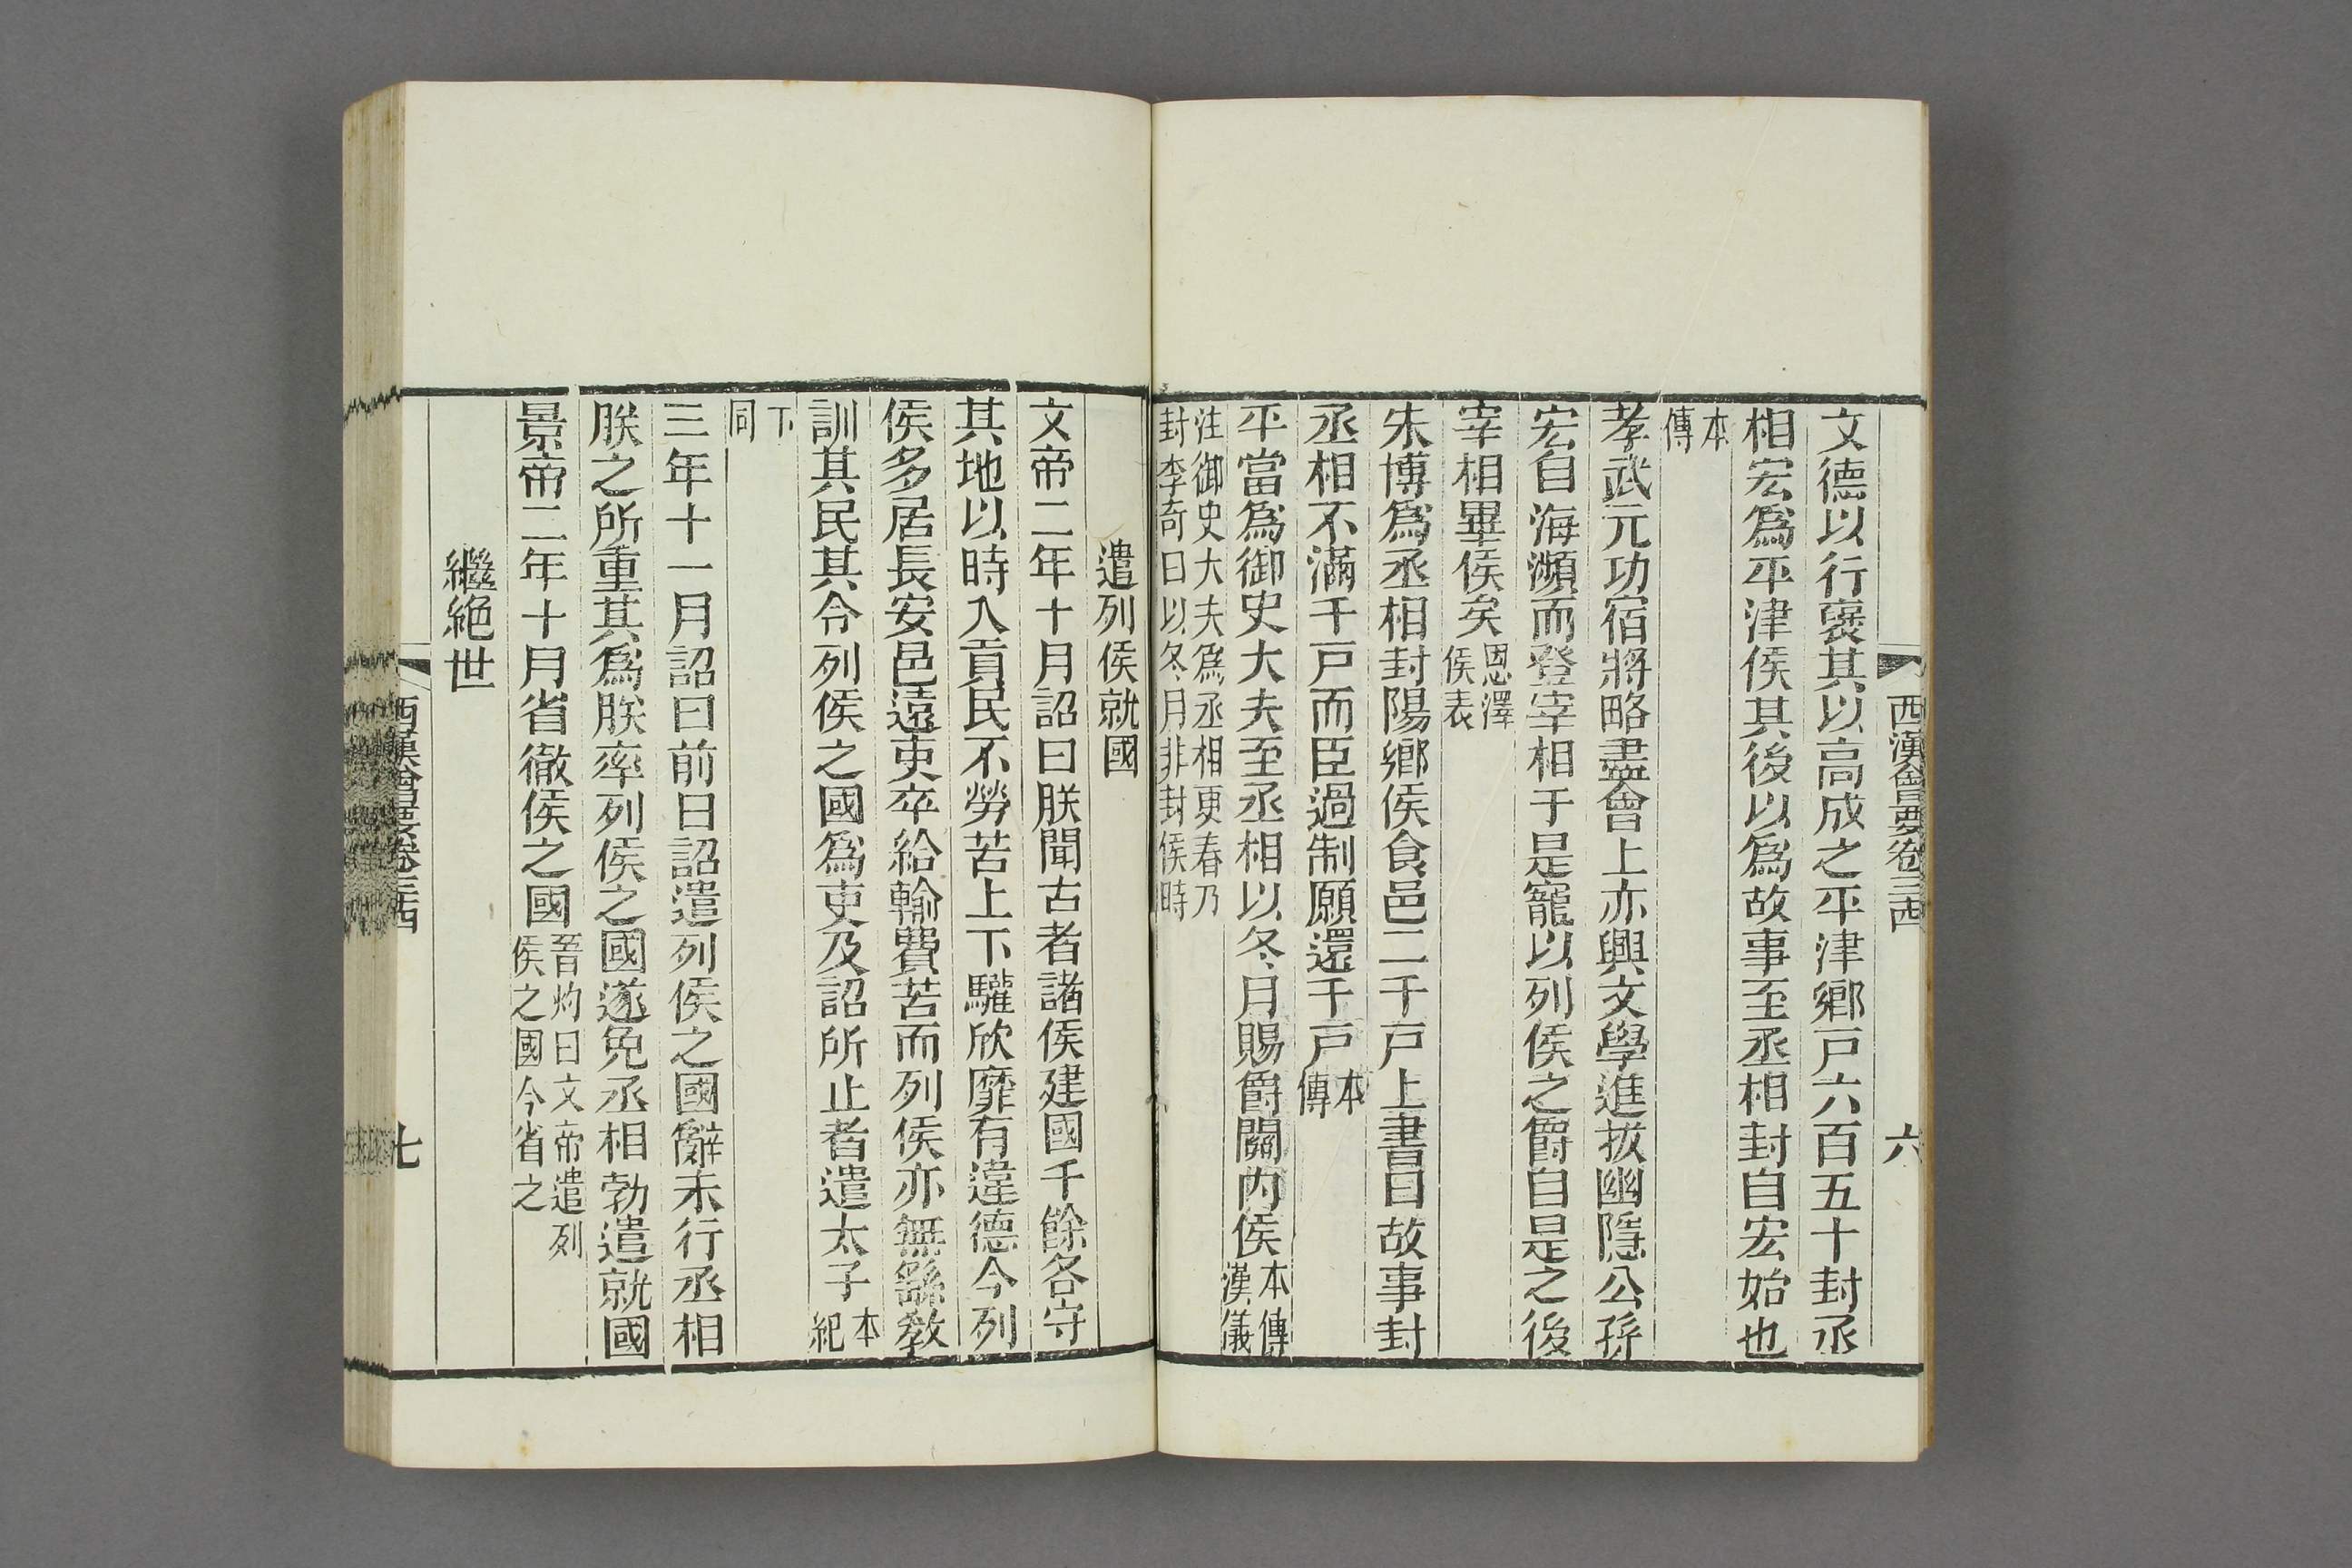 西漢會要卷三四
六
文德以行襃其以高成之平津鄉戸六百五十封丞
相宏爲平津侯其後以爲故事至丞相封自宏始也
本
傳
孝武元功宿將略盡會上亦興文學進拔幽隱公孫
宏自海瀕而登宰相于是寵以列侯之爵自是之後
宰相畢侯矣恩澤
侯表
朱博爲丞相封陽鄉侯食邑二千戸上書曰故事封
丞相不滿千戸而臣過制願還千戸本
傳
平當爲御史大夫至丞相以冬月賜爵關内侯本傳
漢儀
注御史大夫爲丞相更春乃
封李奇曰以冬月非封侯時
遣列侯就國
文帝二年十月詔曰朕聞古者諸侯建國千餘各守
其地以時入貢民不勞苦上下驩欣靡有違德今列
侯多居長安邑遠吏卒給輸費苦而列侯亦無繇敎
訓其民其令列侯之國爲吏及詔所止者遣太子本
紀
下
同
三年十一月詔曰前日詔遣列侯之國辭未行丞相
朕之所重其爲朕率列侯之國遂免丞相勃遣就國
景帝二年十月省徹侯之國晉灼曰文帝遣列
侯之國今省之
繼絶世
西漢會要卷三四
七